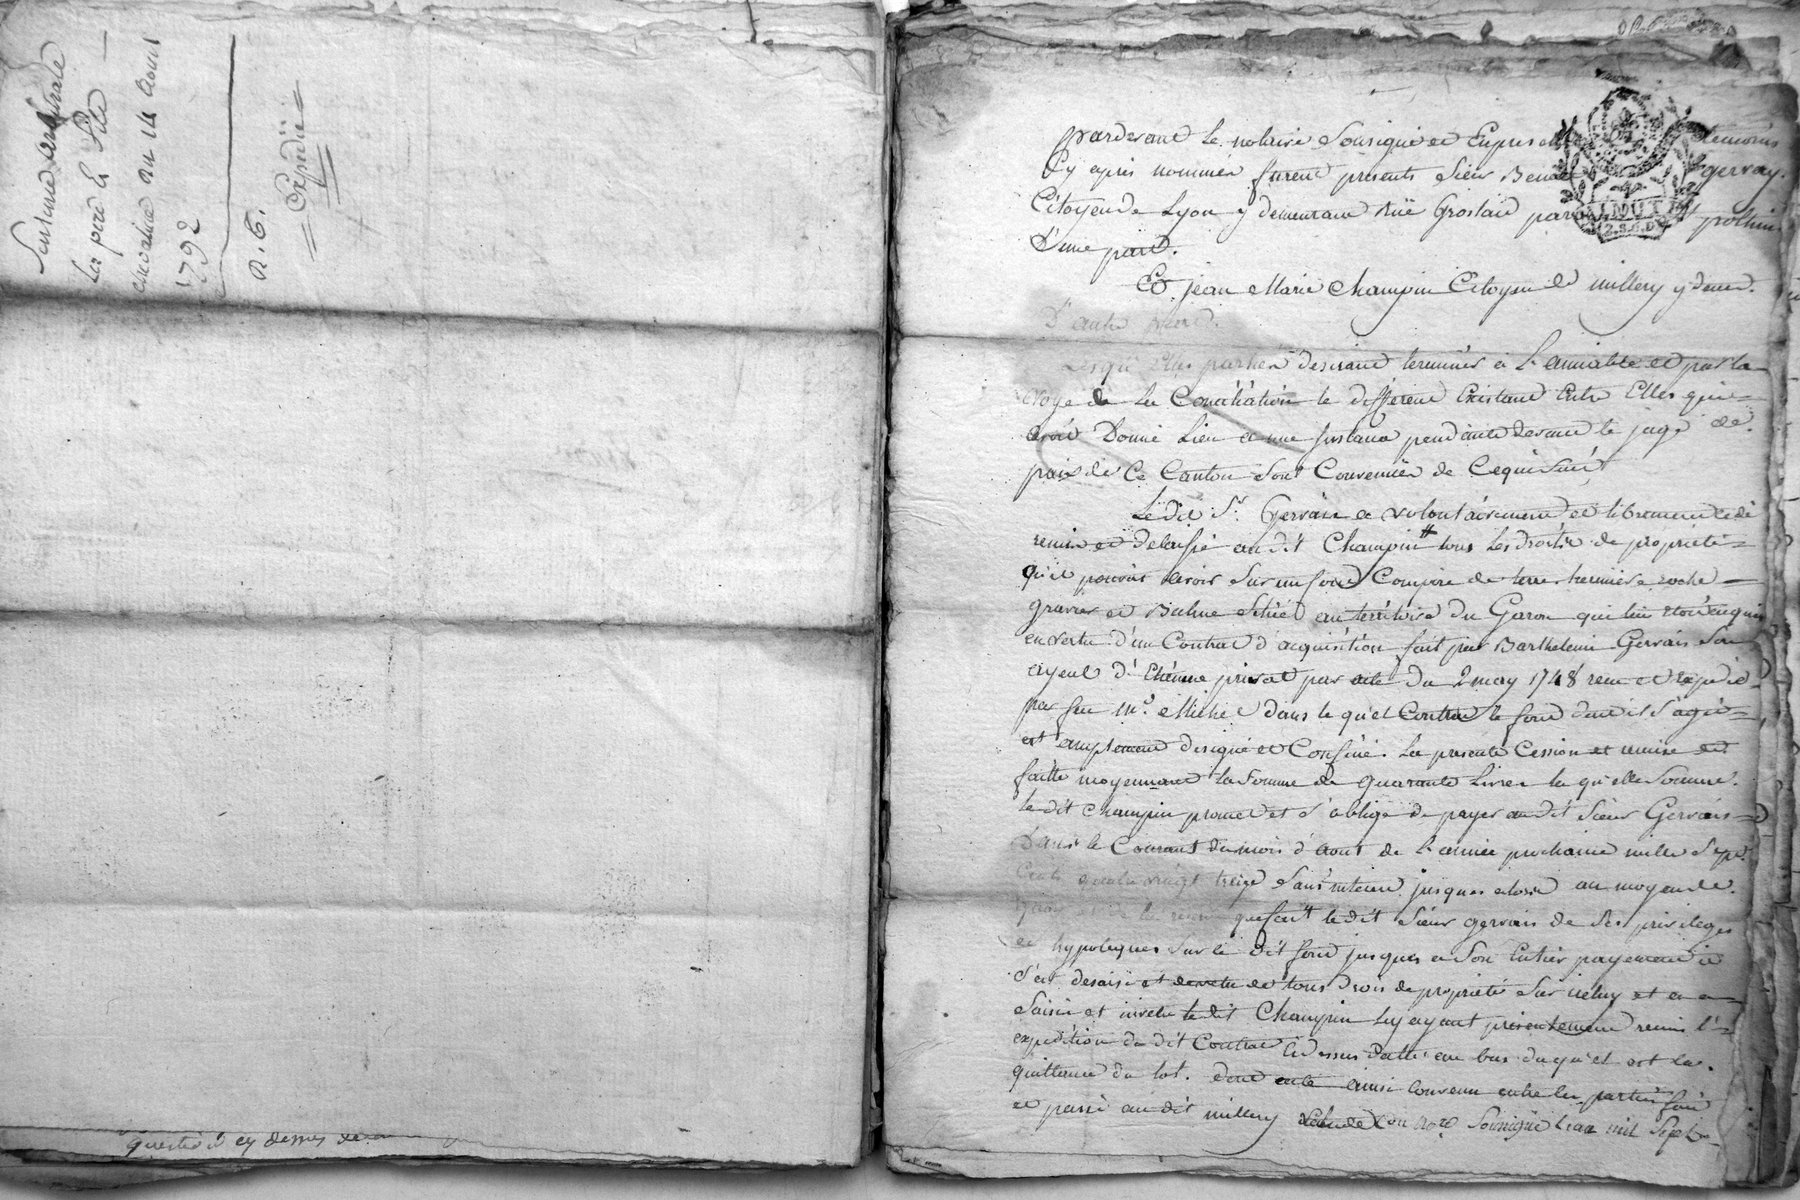 Sentence arbitrale
Les pere & fils
du 14 aout
1792
n. 6.
Expédiée
cy dessus
pardevant le notaire Sousigné et En presence temoins
Cy apres nommés furent présents Sieur Benoit gervay.
Citoyen de Lyon y demeurant Rüe Groslaid paroisse St pothin
D'une part.
Et jean Marie Champin Citoyen de millery y demt.
D'autre part.
Lesqu'elles parties desirant terminer à L'amiable et par la
voye de La Conciliation le differend Existant Entre Elles qui
avoit Donné Lieu a une Instance pendante devant le juge de
paix de Ce Canton Sont Convenües de Cequi Suit,
Le dit Sr. Gervais a volontairement et librement cédé
remis et delaissé au dit Champin # tous Les droits de propriété
qu'il pouvoit avoir Sur un fond Composé de terre hermière roche
gravier et Balme Situé au territoire du Garon qui lui etoit acquis
en vertu d'un Contrat d'acquisition fait par Barthelemi Gervais Son
ayeul d'Etienne privat par acte du 2 may 1748 reçu et Expédié
par feu Me. Michel dans le qu'el Contrat le fond dont il S'agit
est amplement designé et Confiné. La presente Cession et remise est
faitte moyennant la Somme de quarante Livres la qu'elle Somme
le dit Champin promet et S'oblige de payer au dit Sieur Gervais
Dans le Courant du mois d'Aout de L'année prochaine mille Sept
Cents quatre vingt treize Sans interet jusques alors au moyen de
quoi et de la reserve que fait le dit Sieur gervais de Ses privileges
et hypoteques Sur le dit fond jusques a Son Entier payement il
S'est desaisi et devetu de tous Droits de propriété Sur icelui et en a
Saisi et investu le dit Champin Luy ayant présentement remis l'
expédition du dit Contrat Cidessus datté au bas duqu'el est la
quittance du lot. dont acte ainsi convenu entre les parties fait
et passé au dit millery Etude du Nore Sousigné L'an mil Sept